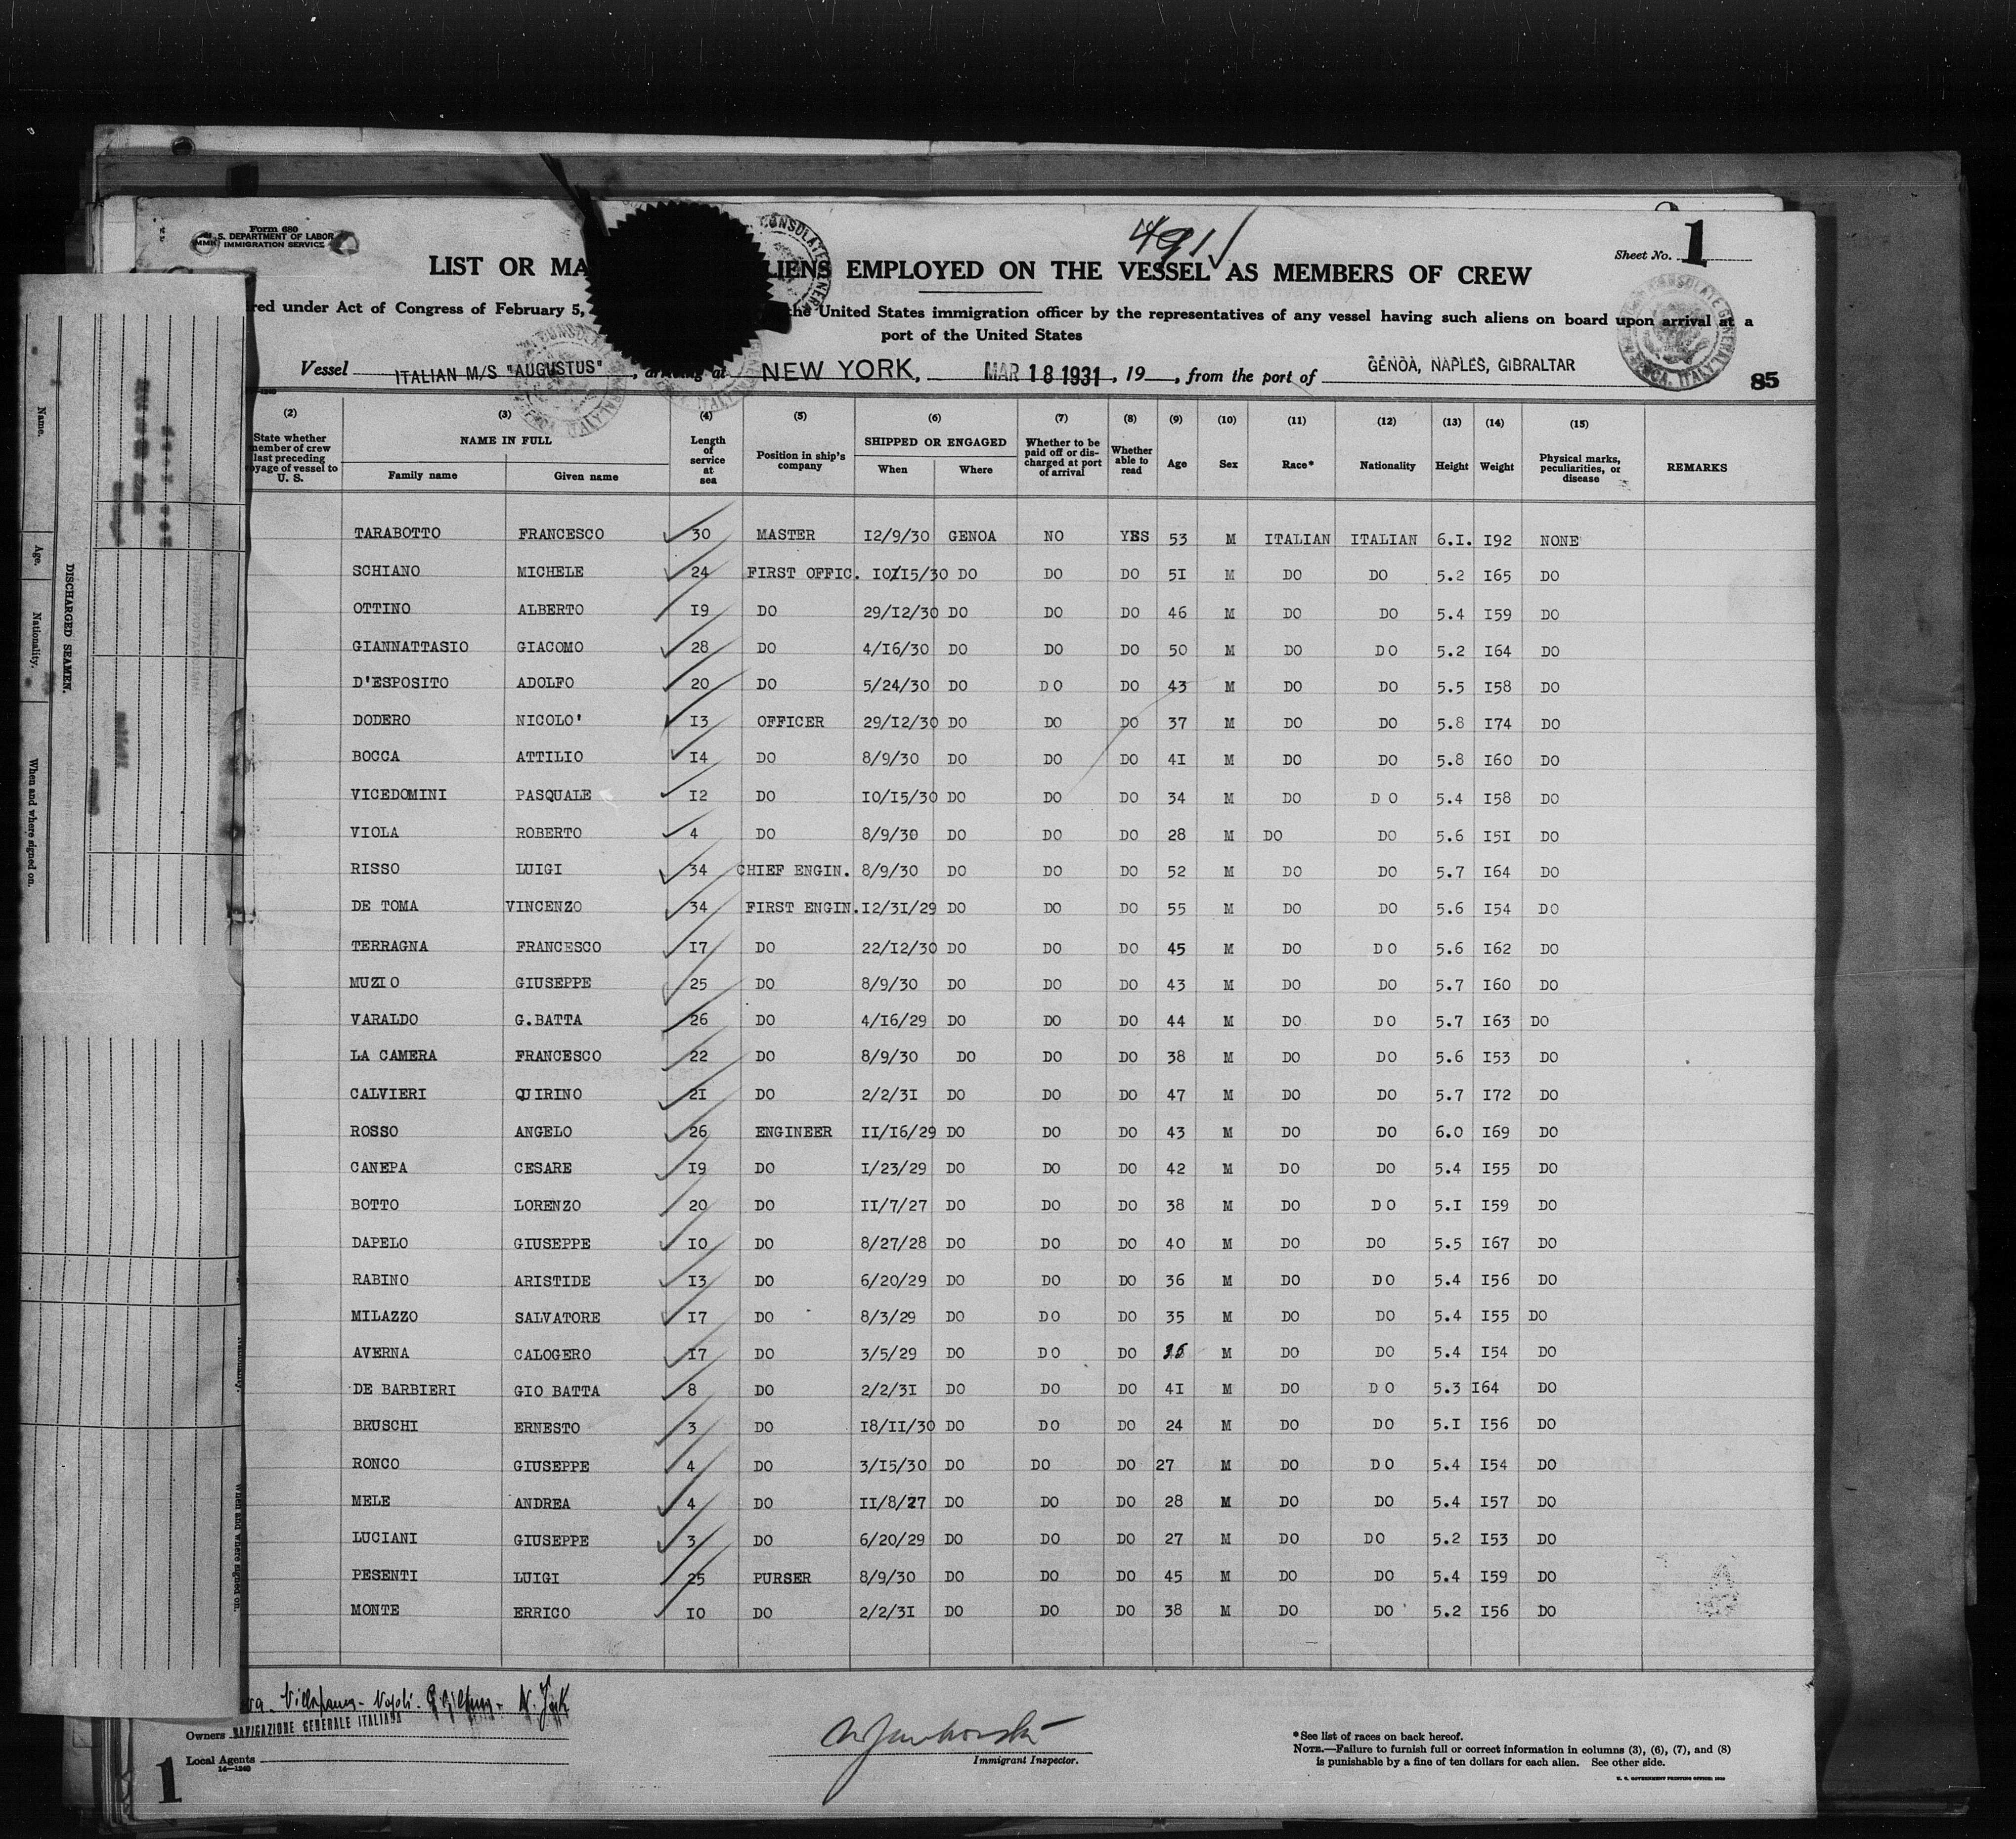 Form 680
U. S. DEPARTMENT OF LABOR
IMMIGRATION SERVICE
491 ✓
Sheet No. 1
LIST OR MA LIENS EMPLOYED ON THE VESSEL AS MEMBERS OF CREW
red under Act of Congress of February 5, the United States immigration officer by the representatives of any vessel having such aliens on board upon arrival at a
port of the United States
Vessel ITALIAN M/S "AUGUSTUS", arriving at NEW YORK, MAR 18 1931, 19 , from the port of GENOA, NAPLES, GIBRALTAR
85
(2) (3) (4) (5) (6) (7) (8) (9) (10) (11) (12) (13) (14) (15)
State whether member of crew last preceding voyage of vessel to U. S. NAME IN FULL Family name Given name Length of service at sea Position in ship's company SHIPPED OR ENGAGED When Where Whether to be paid off or discharged at port of arrival Whether able to read Age Sex Race* Nationality Height Weight Physical marks, peculiarities, or disease REMARKS
TARABOTTO FRANCESCO 30 MASTER 12/9/30 GENOA NO YES 53 M ITALIAN ITALIAN 6.1. 192 NONE
SCHIANO MICHELE 24 FIRST OFFIC. 10/15/30 DO DO DO 51 M DO DO 5.2 165 DO
OTTINO ALBERTO 19 DO 29/12/30 DO DO DO 46 M DO DO 5.4 159 DO
GIANNATTASIO GIACOMO 28 DO 4/16/30 DO DO DO 50 M DO DO 5.2 164 DO
D'ESPOSITO ADOLFO 20 DO 5/24/30 DO DO DO 43 M DO DO 5.5 158 DO
DODERO NICOLO' 13 OFFICER 29/12/30 DO DO DO 37 M DO DO 5.8 174 DO
BOCCA ATTILIO 14 DO 8/9/30 DO DO DO 41 M DO DO 5.8 160 DO
VICEDOMINI PASQUALE 12 DO 10/15/30 DO DO DO 34 M DO DO 5.4 158 DO
VIOLA ROBERTO 4 DO 8/9/30 DO DO DO 28 M DO DO 5.6 151 DO
RISSO LUIGI 34 CHIEF ENGIN. 8/9/30 DO DO DO 52 M DO DO 5.7 164 DO
DE TOMA VINCENZO 34 FIRST ENGIN. 12/31/29 DO DO DO 55 M DO DO 5.6 154 DO
TERRAGNA FRANCESCO 17 DO 22/12/30 DO DO DO 45 M DO DO 5.6 162 DO
MUZIO GIUSEPPE 25 DO 8/9/30 DO DO DO 43 M DO DO 5.7 160 DO
VARALDO G.BATTA 26 DO 4/16/29 DO DO DO 44 M DO DO 5.7 163 DO
LA CAMERA FRANCESCO 22 DO 8/9/30 DO DO DO 38 M DO DO 5.6 153 DO
CALVIERI QUIRINO 21 DO 2/2/31 DO DO DO 47 M DO DO 5.7 172 DO
ROSSO ANGELO 26 ENGINEER 11/16/29 DO DO DO 43 M DO DO 6.0 169 DO
CANEPA CESARE 19 DO 1/23/29 DO DO DO 42 M DO DO 5.4 155 DO
BOTTO LORENZO 20 DO 11/7/27 DO DO DO 38 M DO DO 5.1 159 DO
DAPELO GIUSEPPE 10 DO 8/27/28 DO DO DO 40 M DO DO 5.5 167 DO
RABINO ARISTIDE 13 DO 6/20/29 DO DO DO 36 M DO DO 5.4 156 DO
MILAZZO SALVATORE 17 DO 8/3/29 DO DO DO 35 M DO DO 5.4 155 DO
AVERNA CALOGERO 17 DO 3/5/29 DO DO DO 35 M DO DO 5.4 154 DO
DE BARBIERI GIO BATTA 8 DO 2/2/31 DO DO DO 41 M DO DO 5.3 164 DO
BRUSCHI ERNESTO 3 DO 18/11/30 DO DO DO 24 M DO DO 5.1 156 DO
RONCO GIUSEPPE 4 DO 3/15/30 DO DO DO 27 M DO DO 5.4 154 DO
MELE ANDREA 4 DO 11/8/27 DO DO DO 28 M DO DO 5.4 157 DO
LUCIANI GIUSEPPE 3 DO 6/20/29 DO DO DO 27 M DO DO 5.2 153 DO
PESENTI LUIGI 25 PURSER 8/9/30 DO DO DO 45 M DO DO 5.4 159 DO
MONTE ERRICO 10 DO 2/2/31 DO DO DO 38 M DO DO 5.2 156 DO
Napoli - N. York
Owners NAVIGAZIONE GENERALE ITALIANA
Local Agents
14—1240
1
Immigrant Inspector.
*See list of races on back hereof.
NOTE.—Failure to furnish full or correct information in columns (3), (6), (7), and (8)
is punishable by a fine of ten dollars for each alien. See other side.
U. S. GOVERNMENT PRINTING OFFICE: 1930
DISCHARGED SEAMEN.
Name.
Age.
Nationality.
When and where signed on.